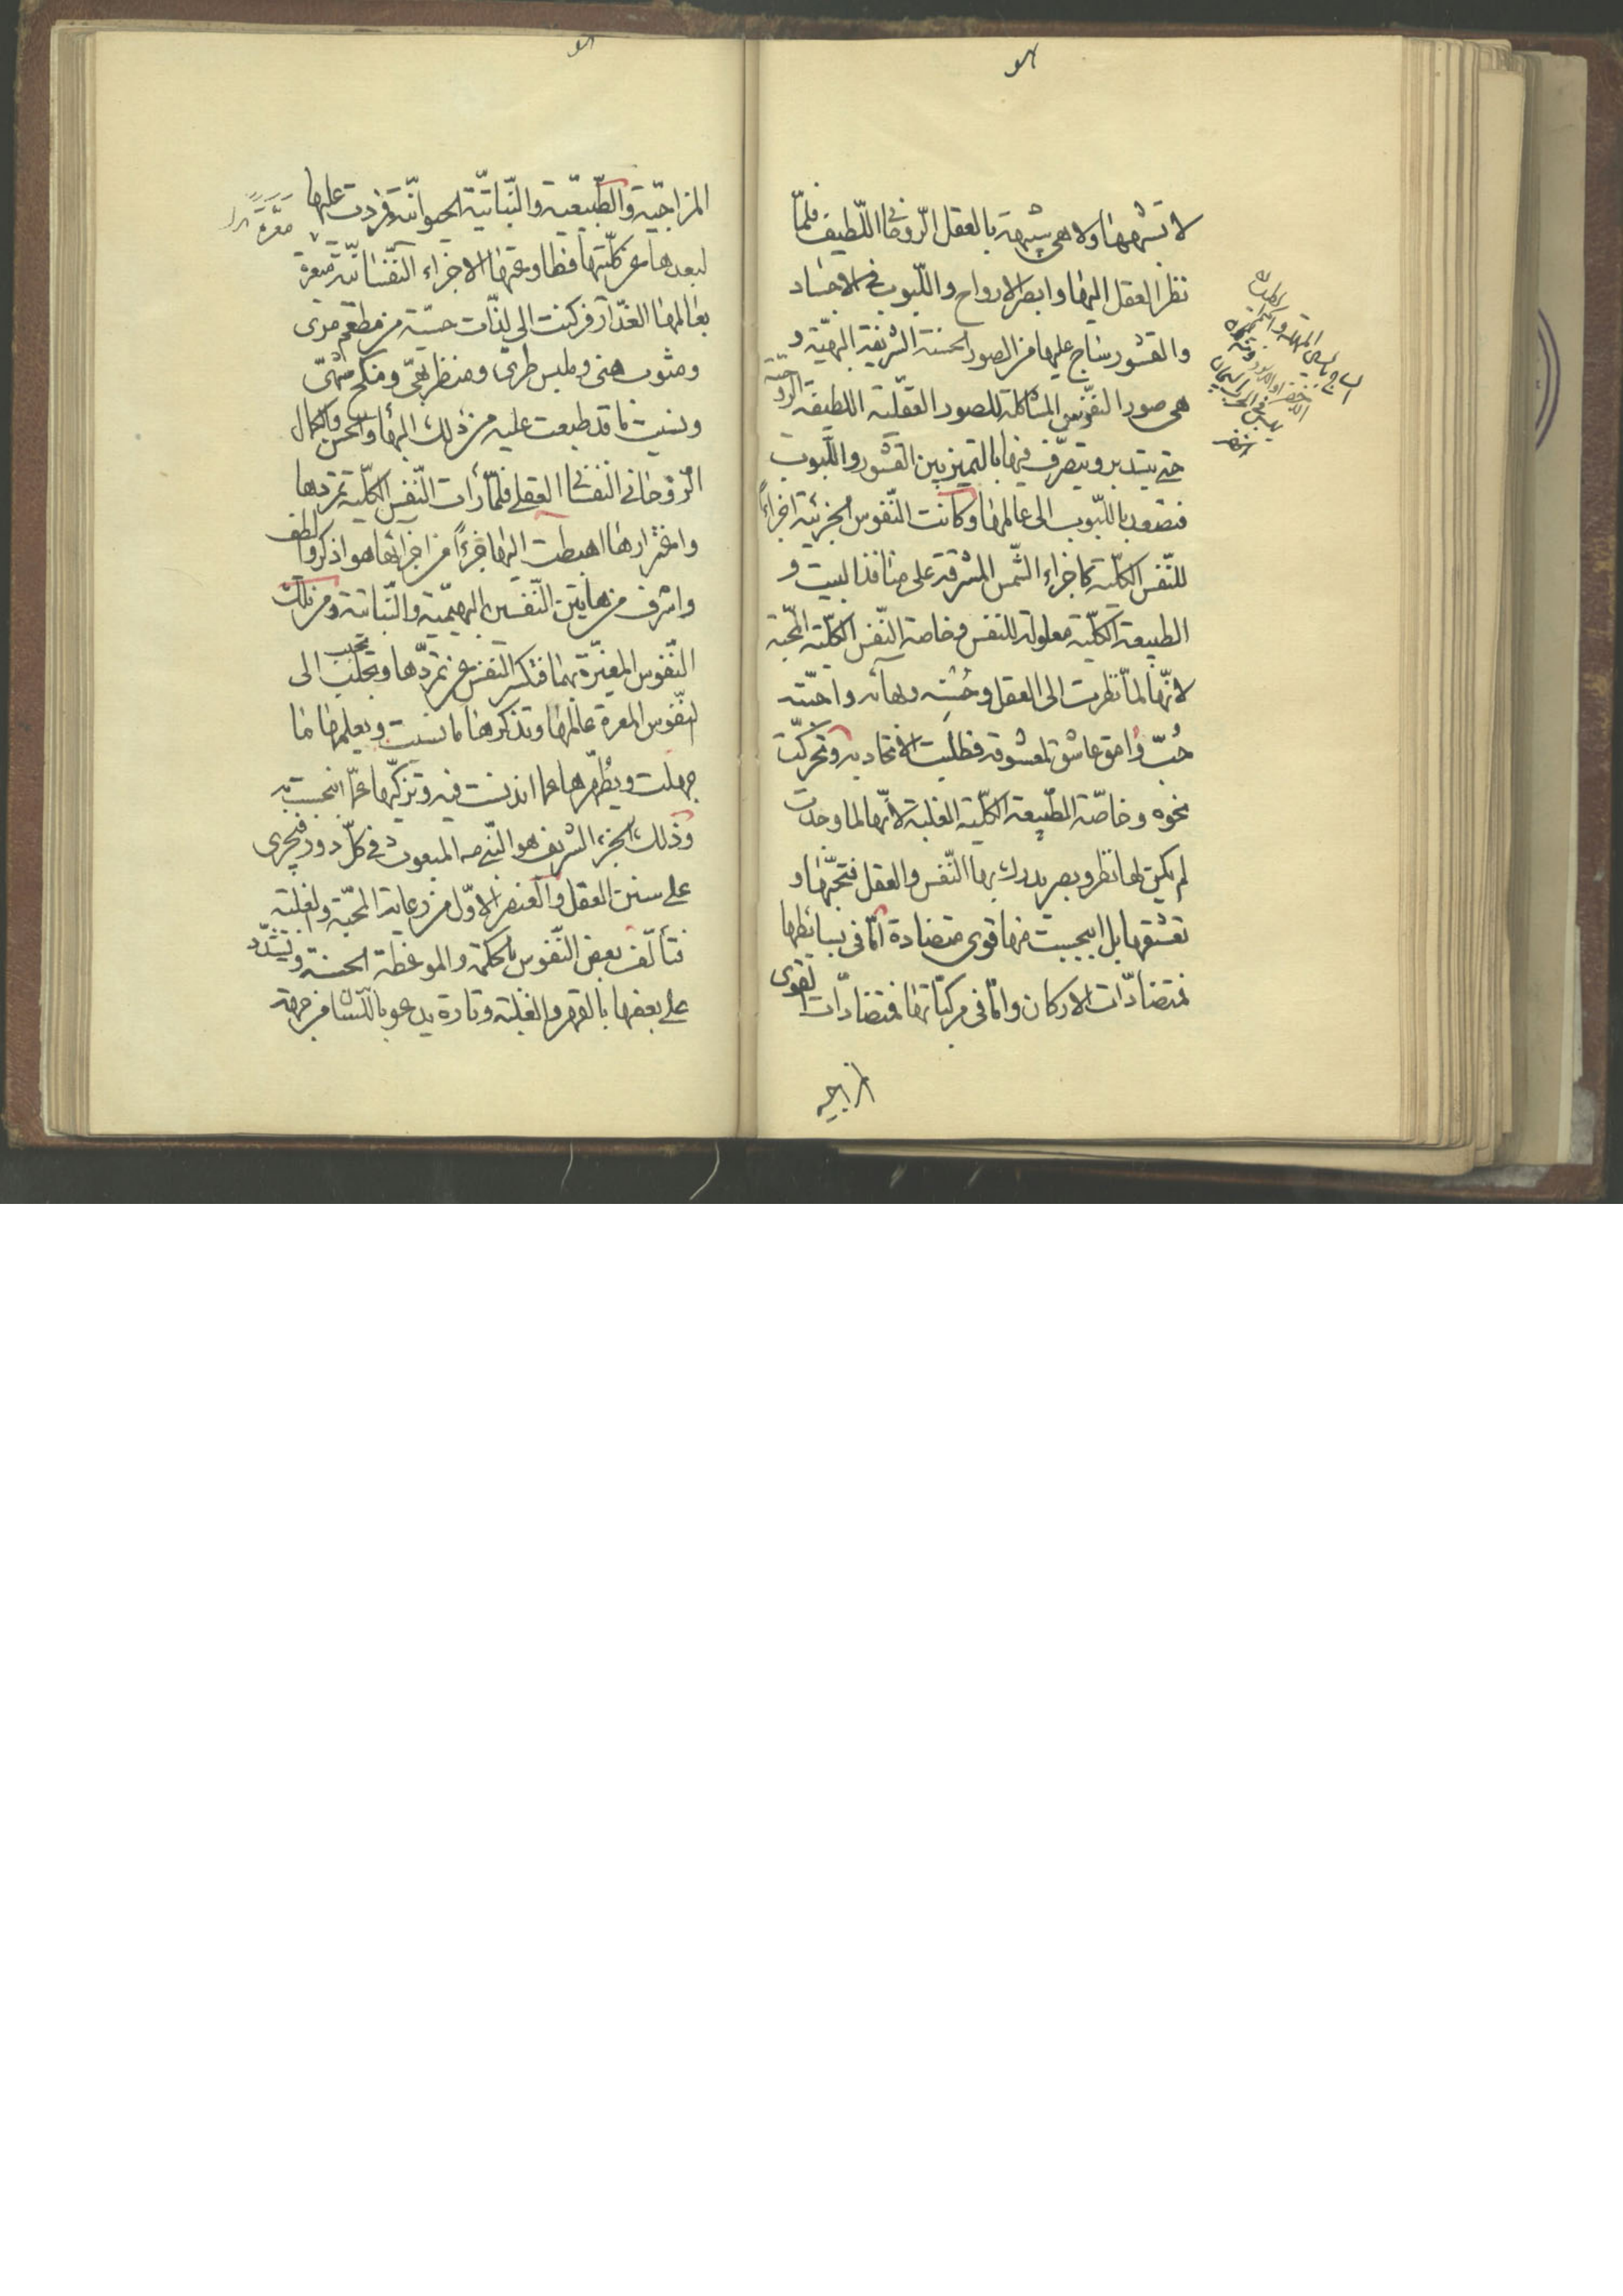 لا تشبهها ولا هي شبيهة بالعقل الروحانى اللّطيف فلمّا
نظر العقل اليها وابصر الارواح واللّبوب فى الاجساد
والقشور ساح عليها من الصور الحسنة الشريفة البهيّة و
هى صور النّفوس المشاكلة للصور العقليّة اللطيفة الروحانية
حتى يتدبر ويتصرّف فيها بالتميز بين القشور واللّبوب
فتصعد باللّبوب الى عالمها وكانت النّفوس الجزئية اجزاءً
للنّفس الكليّة كاجزاء الشّمس المشرقة على منافذ البيت و
الطبيعة الكليّة معلولة للنفس وخاصة النّفس الكليّة المحبّة
لانّها لمّا نظرت الى العقل وحُسْنه وبهائه واحبّته
حُبّ وامق عاشق لمعشوقه فطلبت الاتحاد به وتحرّكت
نحوه وخاصّة الطّبيعة الكليّة الغلبة لانّها لما وجدت
لم يكن لها نظر وبصر يدرك بها النّفس والعقل فتحبّهما و
تعشقها بل انبجست منها قوى متضادة امّا فى بسائطها
فمتضادّات الاركان وامّا فى مركّباتها فمتضادّات القوى
المزاجيه
المزاجيّة والطّبيعيّة والنّباتيّة الحيوانيّة فردت عليها
لبعدها عن كليّتها فطاوعتها الاجزاء النّفسانيّة مغترة
بعالمها الغدّار فركنت الى لذّات حسيّة من مطعم مرى
ومشرب هنى وملبس طرى ومنظر بهىّ ومنكح شهىّ
ونسيت ما قد طبعت عليه من ذلك البهاء والحسن والكمال
الرّوحانى النفسانى العقلى فلمّا رأت النّفس الكليّة تمردها
واغترارها اهبطت اليها جزءاً من اجزائها هو اذكى والطف
واشرف من هاتين النّفسين البهيميّة والنّباتيّة ومن تلك
النّفوس المغترّة بهما فتكسر النّفس عن تمرّدها وتحبّب الى
النّفوس المغترة عالمها وتذكرها ما نسيت ويعلمها ما
جهلت ويُطهّرها عما تدنست فيه وتزكّيها عمّا تنجست به
وذلك الجزء الشريف هو النّبى صه المبعوث فى كلّ دور فيجرى
على سنن العقل والعنصر الاوّل من رعاية المحبّة والغلبة
فتألّف بعض النّفوس بالحكمة والموعظة الحسنة ويشدّد
على بعضها بالقهر والغلبة وتارة يدعو باللّسان من جهة